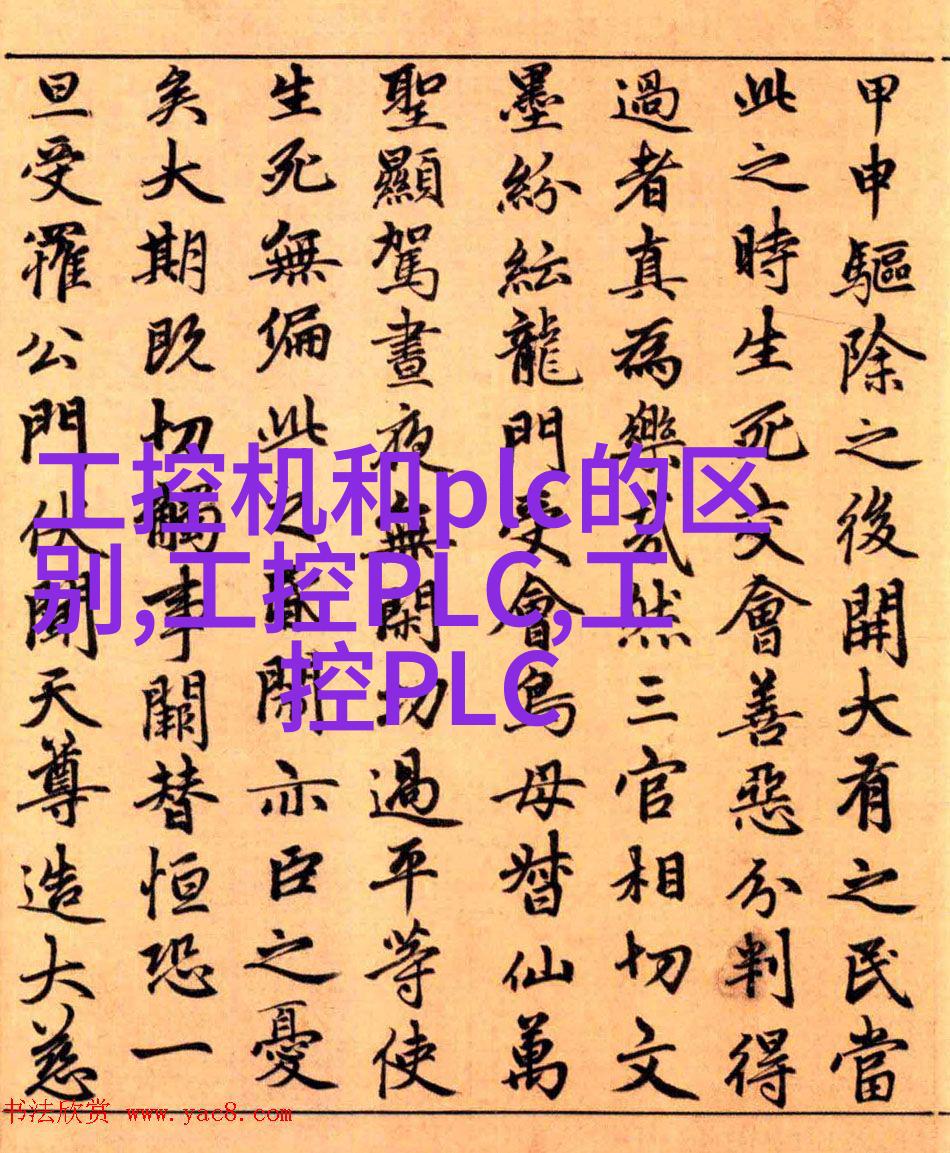 甲申驅除之後開大有之民當
此之時生死交會善惡分判得
過者真為樂哉然三官相切文
墨紛紜龍門受會鳥母督仙萬
聖顯駕晝夜無閑功過平等使
生死無偏此之亦臣之憂
矣大期既切觸事闕替恒恐一
旦受罹公門伏聞天尊造大慈
工控机和plc的区
别,工控PLC,工
控PLC
书法欣赏 www.yac8.com